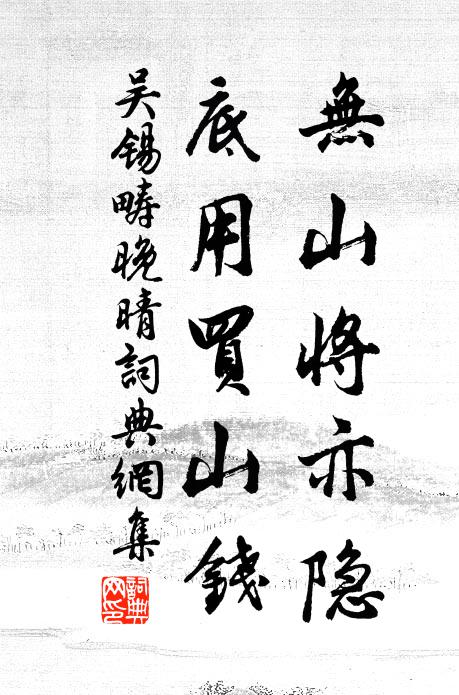 無山將亦隐
底用買山錢
吴錫疇晚晴詞典網集
詞典网印